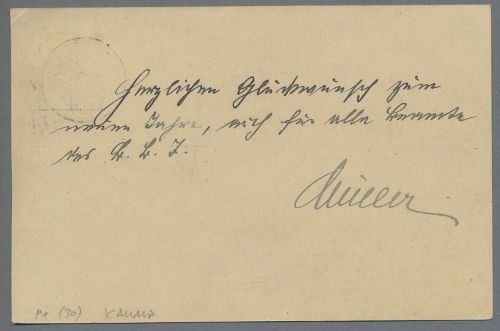 Herzlichen Glückwunsch zum
neuen Jahre, auch für alle Beamte
des B. L. J.
Müller
P1 (30) KAUMA